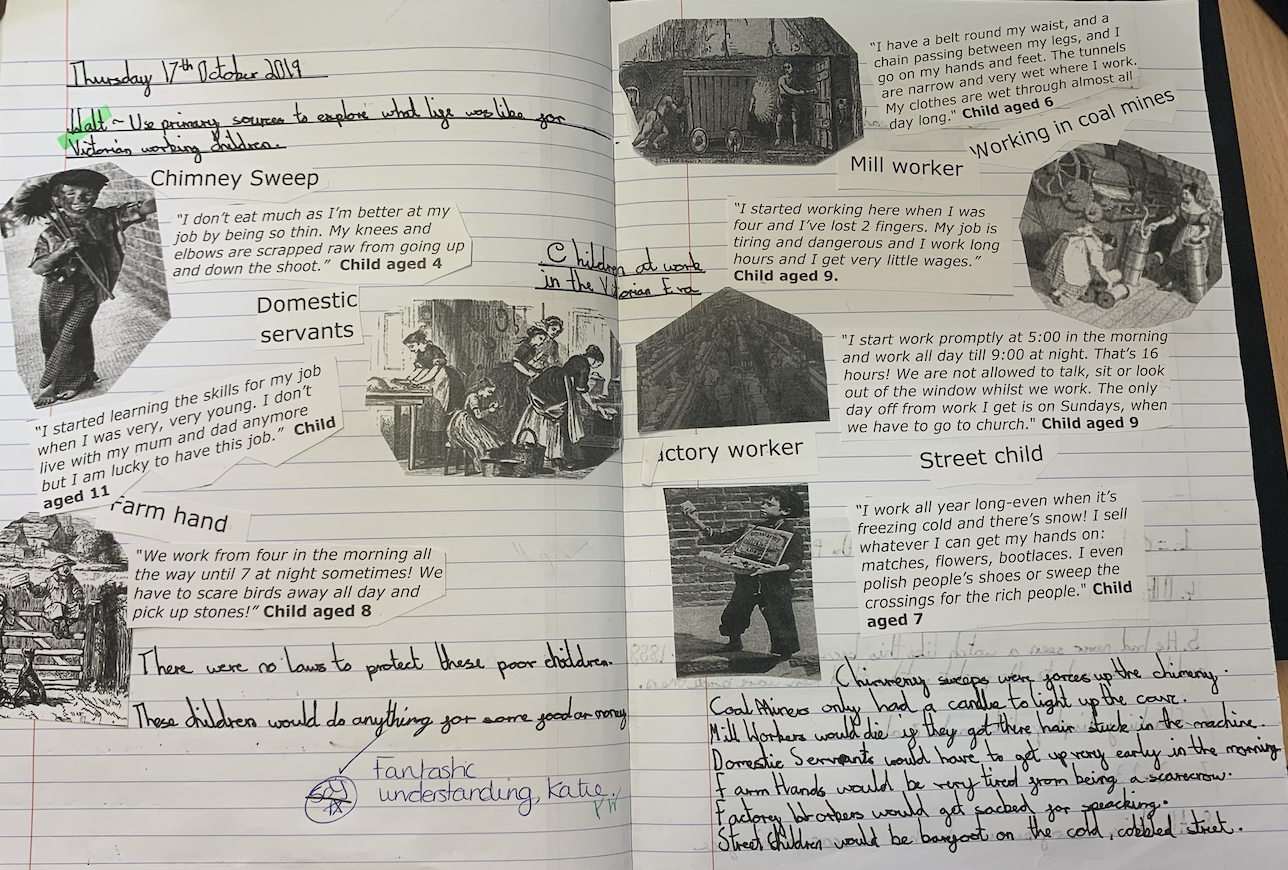 Thursday 17th October 2019
Walt ~ Use primary sources to explore what lige was like for
Victorian working children.
Chimney Sweep
"I don't eat much as I'm better at my
job by being so thin. My knees and
elbows are scrapped raw from going up
and down the shoot." Child aged 4
Domestic
servants
"I started learning the skills for my job
when I was very, very young. I don't
live with my mum and dad anymore
but I am lucky to have this job." Child
aged 11
Farm hand
"We work from four in the morning all
the way until 7 at night sometimes! We
have to scare birds away all day and
pick up stones!" Child aged 8
There were no laws to protect these poor children.
These children would do anything for some food or money
Fantastic
understanding, Katie.
Children at work
in the Victorian Era
"I have a belt round my waist, and a
chain passing between my legs, and I
go on my hands and feet. The tunnels
are narrow and very wet where I work.
My clothes are wet through almost all
day long." Child aged 6
Working in coal mines
Mill worker
"I started working here when I was
four and I've lost 2 fingers. My job is
tiring and dangerous and I work long
hours and I get very little wages."
Child aged 9.
"I start work promptly at 5:00 in the morning
and work all day till 9:00 at night. That's 16
hours! We are not allowed to talk, sit or look
out of the window whilst we work. The only
day off from work I get is on Sundays, when
we have to go to church." Child aged 9
actory worker
Street child
"I work all year long-even when it's
freezing cold and there's snow! I sell
whatever I can get my hands on:
matches, flowers, bootlaces. I even
polish people's shoes or sweep the
crossings for the rich people." Child
aged 7
Chimmeny sweaps were forces up the chimeny.
Coal Miners only had a candle to light up the cave.
Mill Workers would die if they got there hair stuck in the machine.
Domestic Servants would have to get up very early in the morning
Farm Hands would be very tired from being a scarecrow.
Factorey Workers would get sacked for speacking.
Street Children would be barefoot on the cold, cobbled street.